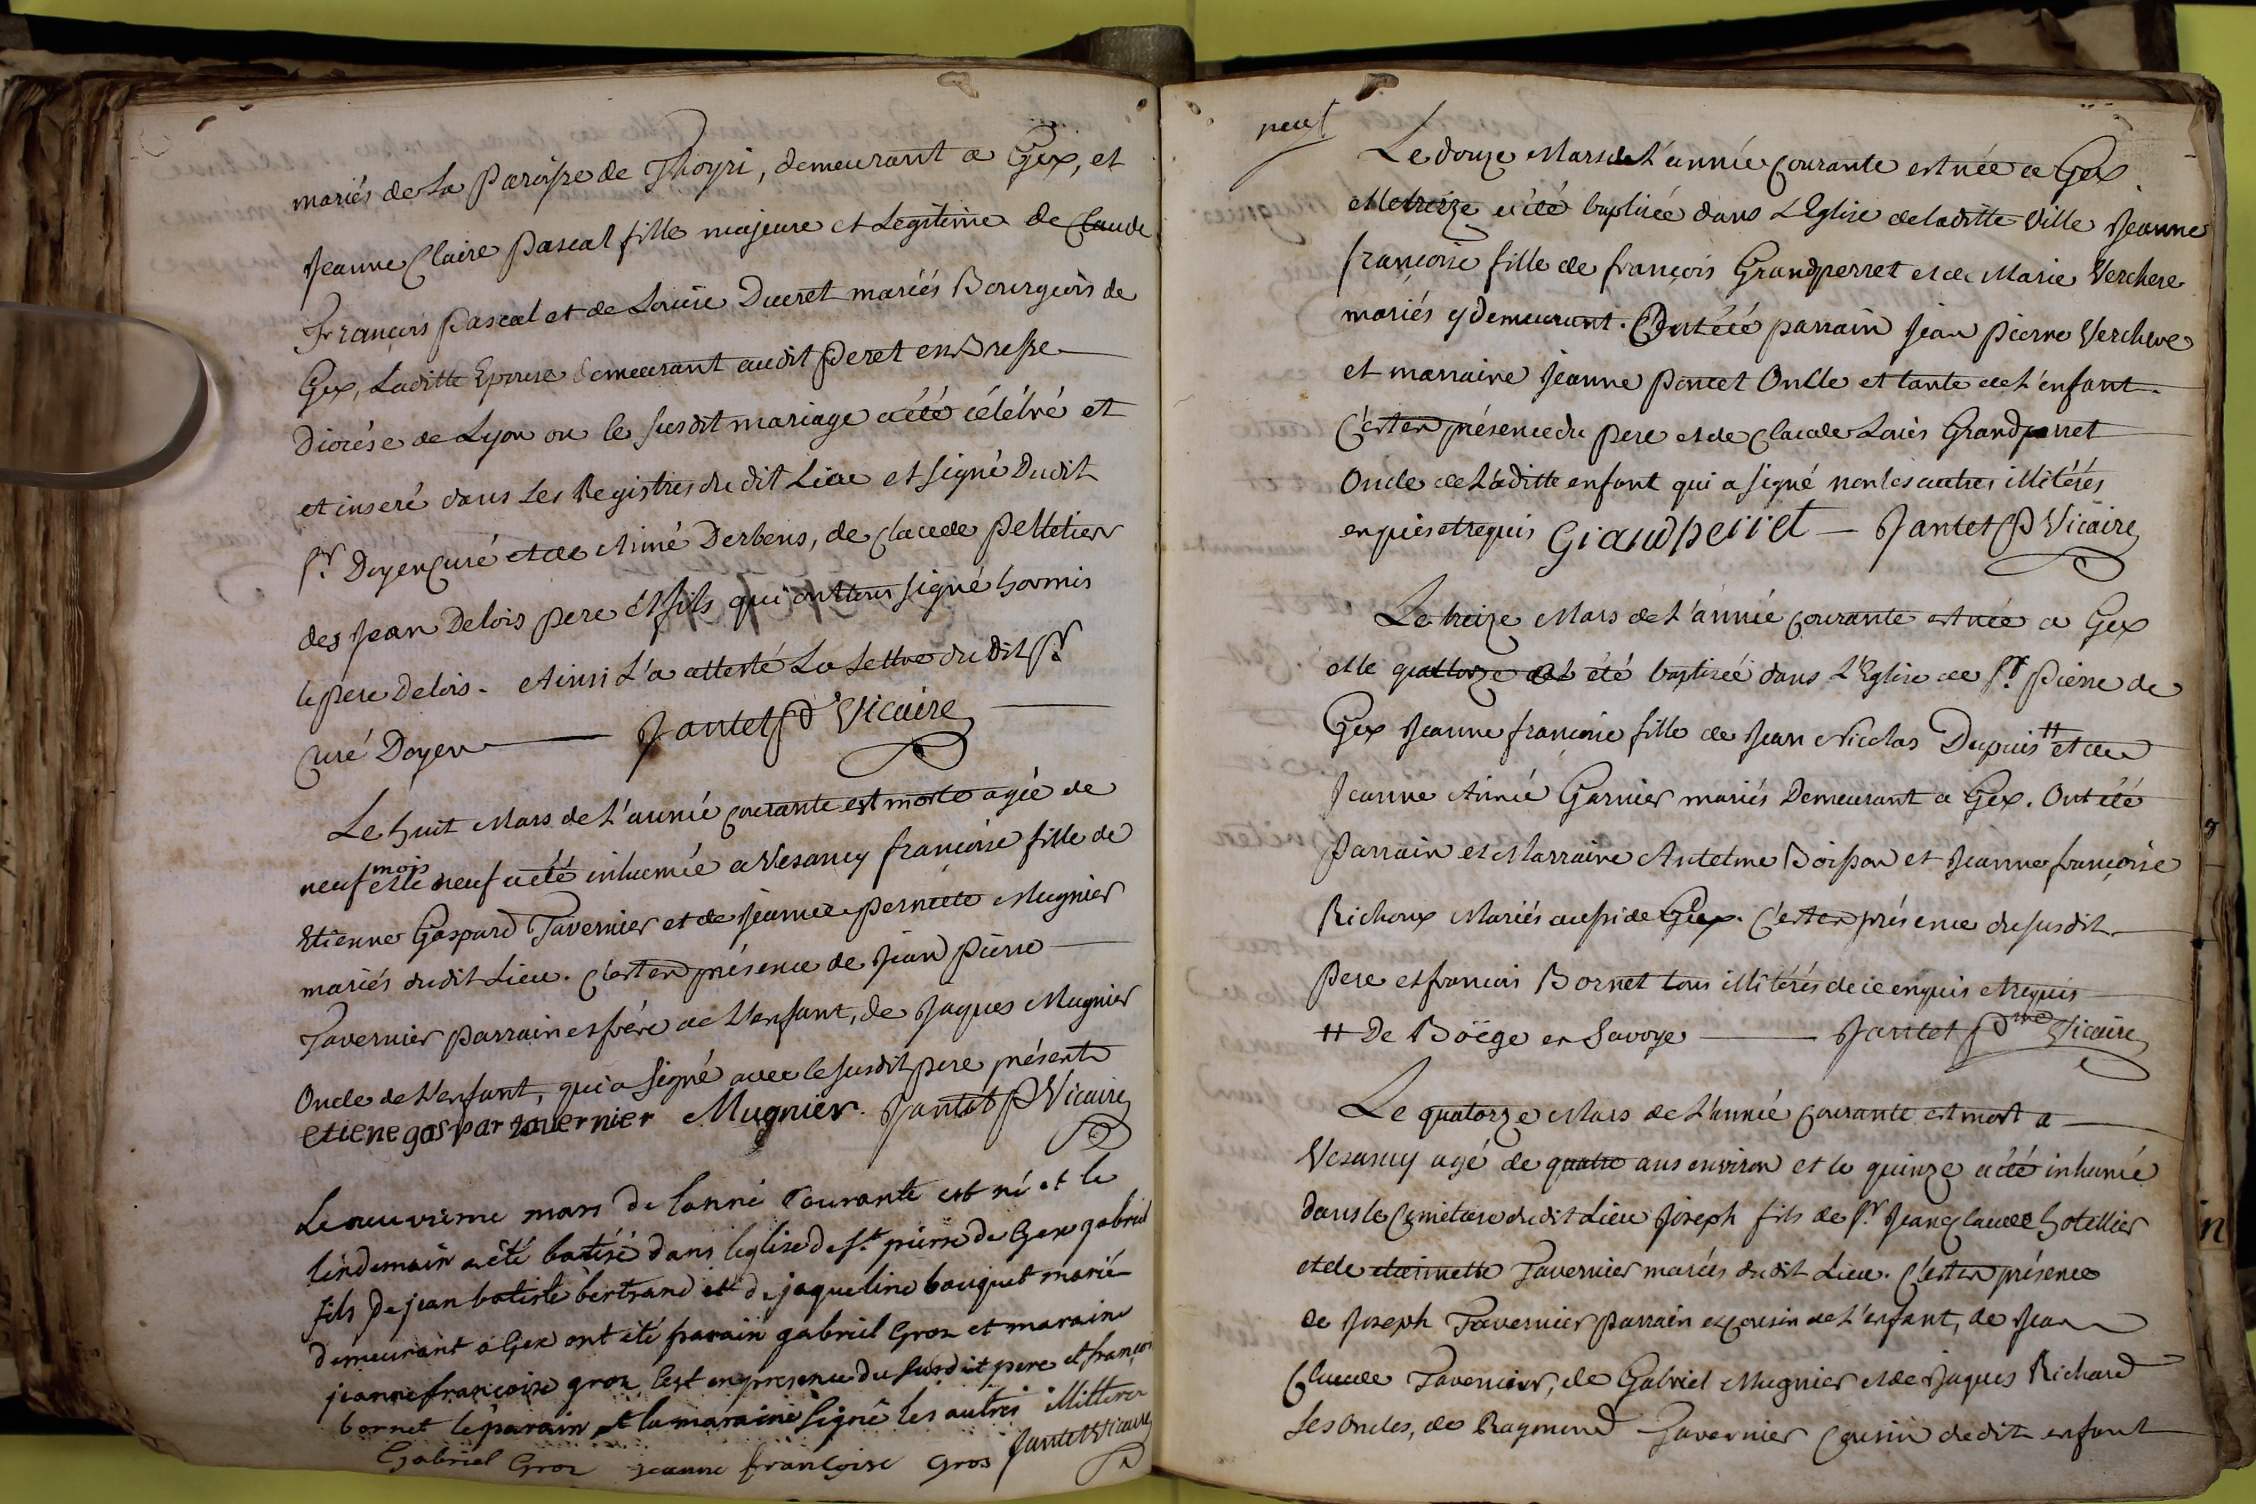 mariés de La Paroisse de Thoyri, demeurant a Gex, et
Jeanne Claire Pascal fille majeure et Légitime de Claude
François Pascal et de Louise Ducret mariés Bourgeois de
Gex, Laditte Epouse demeurant audit Peret en Bresse
Diocése de Lyon ou le susdit mariage a été célébré et
et inseré dans Les Registres du dit Lieu et signé Dudit
Sr. Doyen Curé et de Aimé Derbens, de Claude Pelletier
des Jean Delois pere et fils qui ont tous signé hormis
le pere Delois. Ainsi L'a attesté La Lettre du dit Sr.
Curé Doyen Jantet P Vicaire
Le huit Mars de L'année courante est morte agée de
neuf mois et le neuf a été inhumée a Vesancy françoise fille de
Etienne Gaspard Tavernier et de Jeanne pernette Mugnier
mariés du dit Lieu. C'est en présence de Jean Pierre
Tavernier parrain et frére de L'enfant, de Jaques Mugnier
Oncle de L'enfant, qui a signé avec le susdit pere présents
etiene gaspar tavernier Mugnier Jantet P Vicaire
Le neuvieme mars de lanné Courante est né et le
lendemain a été batisé dans leglise de St. pierre de Gex gabriel
fils de jean batiste bertrand et de jaqueline bouquet marié
demeurant a Gex ont été parain gabriel Gros et maraine
jeanne françoise gros Cest en presence du susdit pere et françois
bornet le parain et la maraine signé les autres illitteres
Gabriel Gros jeanne françoise gros Jantet Vicaire
neuf
Le douze Mars de L'année courante est née a Gex
et le treize a été baptisée dans L'Eglise de laditte Ville Jeanne
françoise fille de françois Grandperret et de Marie Verchere
mariés y demeurant. Ont été parrain Jean Pierre Verchere
et marraine Jeanne Poncet Oncle et tante de L'enfant.
C'est en présence du pere et de Claude Louis Grandperret
Oncle de Laditte enfant qui a signé non les autres illitérés
enquis et requis Grandperret Jantet P Vicaire
Le treize Mars de L'année courante est née a Gex
et le quatorze a été baptisée dans L'Eglise de St. Pierre de
Gex Jeanne françoise fille de Jean Nicolas Dupuis # et de
Jeanne Aimée Garnier mariés Demeurant a Gex. Ont été
parrain et Marraine Antelme Boisson et Jeanne françoise
Richoux Mariés aussi de Gex. C'est en présence du susdit
pere et francois Bornet tous illitérés de ce enquis et requis
# De Böége en Savoye Jantet Ptre Vicaire
Le quatorze Mars de L'année courante est mort a
Vesancy agé de quatre ans environ et le quinze a été inhumé
dans le Cimetiere du dit Lieu Joseph fils de Sr. Jean Claude hotellier
et de etiennette Tavernier mariés du dit Lieu. C'est en présence
de Joseph Tavernier parrain et cousin de L'enfant, de Jean
Claude Tavernier, de Gabriel Mugnier et de Jaques Richard
Les Oncles, de Raymond Tavernier Cousin du dit enfant